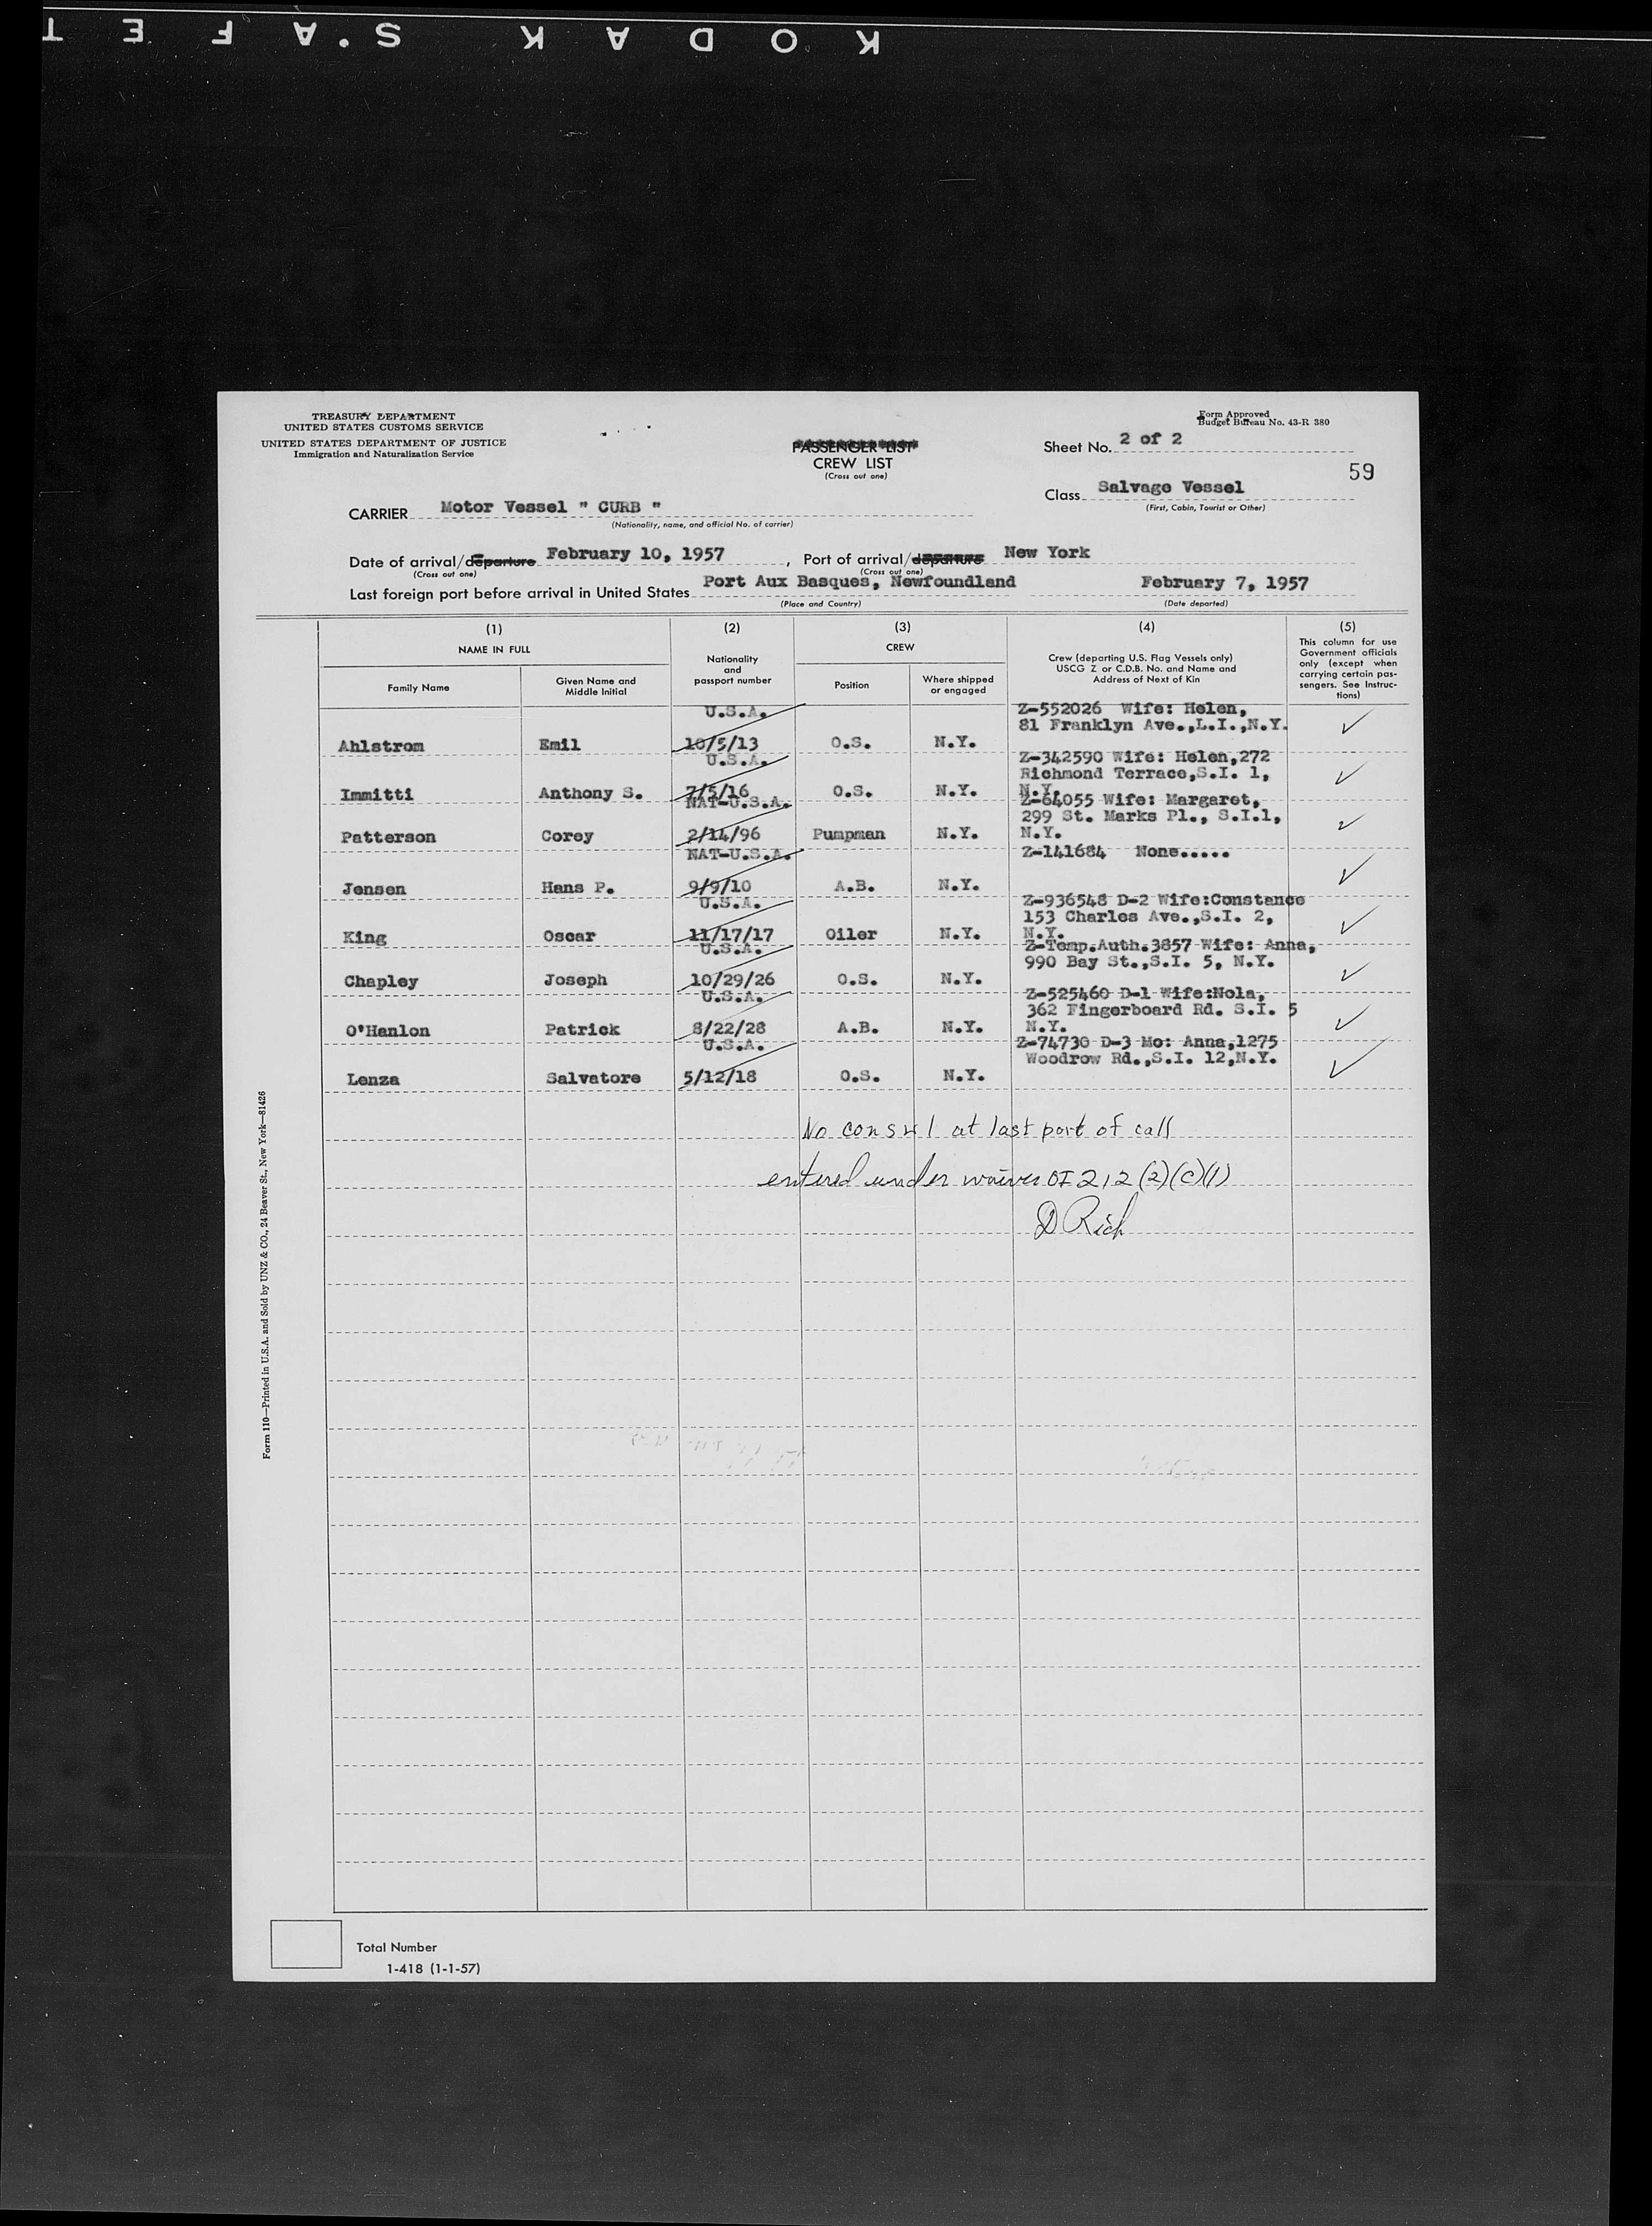 KODAK SAFET
TREASURY DEPARTMENT
UNITED STATES CUSTOMS SERVICE
UNITED STATES DEPARTMENT OF JUSTICE
Immigration and Naturalization Service
PASSENGER LIST
CREW LIST
(Cross out one)
Form Approved
Budget Bureau No. 43-R 380
Sheet No. 2 of 2
59
Class Salvage Vessel
(First, Cabin, Tourist or Other)
CARRIER Motor Vessel " CURB "
(Nationality, name, and official No. of carrier)
Date of arrival/departure February 10, 1957, Port of arrival/departure New York
(Cross out one) (Cross out one)
Last foreign port before arrival in United States Port Aux Basques, Newfoundland February 7, 1957
(Place and Country) (Date departed)
(1) (2) (3) (4) (5)
NAME IN FULL
Family Name
Given Name and
Middle Initial
Nationality
and
passport number
CREW
Position
Where shipped
or engaged
Crew (departing U.S. Flag Vessels only)
USCG Z or C.D.B. No. and Name and
Address of Next of Kin
This column for use
Government officials
only (except when
carrying certain pas-
sengers. See Instruc-
tions)
U.S.A. Z-552026 Wife: Helen,
81 Franklyn Ave.,L.I.,N.Y.
Ahlstrom Emil 10/5/13 O.S. N.Y.
U.S.A. Z-342590 Wife: Helen,272
Richmond Terrace,S.I. 1,
Immitti Anthony S. 7/5/16 O.S. N.Y. N.Y.
NAT-U.S.A. Z-64055 Wife: Margaret,
299 St. Marks Pl., S.I.1,
Patterson Corey 2/14/96 Pumpman N.Y. N.Y.
NAT-U.S.A. Z-141684 None.....
Jensen Hans P. 9/9/10 A.B. N.Y.
U.S.A. Z-936548 D-2 Wife:Constance
153 Charles Ave.,S.I. 2,
King Oscar 11/17/17 Oiler N.Y. N.Y.
U.S.A. Z-Temp.Auth.3857 Wife: Anna,
990 Bay St.,S.I. 5, N.Y.
Chapley Joseph 10/29/26 O.S. N.Y.
U.S.A. Z-525460 D-1 Wife:Nola,
362 Fingerboard Rd. S.I. 5
O'Hanlon Patrick 8/22/28 A.B. N.Y. N.Y.
U.S.A. Z-74730 D-3 Mo: Anna,1275
Woodrow Rd.,S.I. 12,N.Y.
Lenza Salvatore 5/12/18 O.S. N.Y.
No consul at last port of call
entered under waiver OI 212 (2)(c)(1)
D Rich
Form 110—Printed in U.S.A. and Sold by UNZ & CO., 24 Beaver St., New York—81426
Total Number
1-418 (1-1-57)